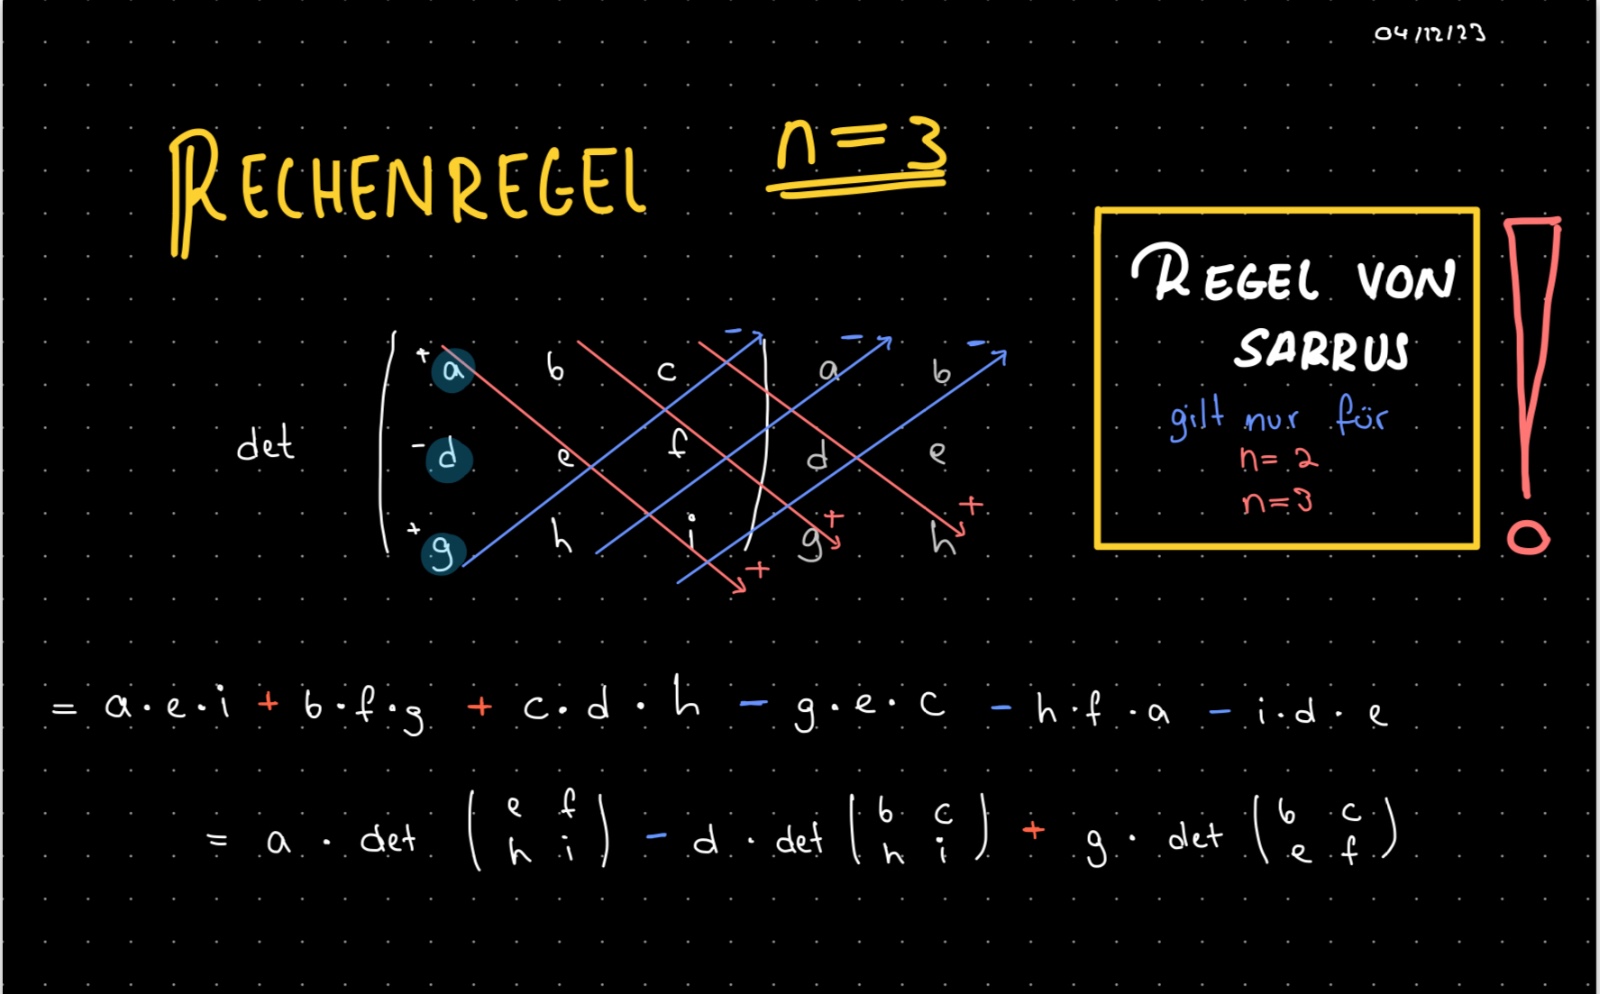 04/12/23
RECHENREGEL n=3
REGEL VON
SARRUS
gilt nur für
n=2
n=3
+ a b c - a - b -
det - d e f d e
+ g h i + g + h +
= a·e·i + b·f·g + c·d·h - g·e·c - h·f·a - i·d·e
= a · det (e f) - d · det (b c) + g · det (b c)
(h i) (h i) (e f)